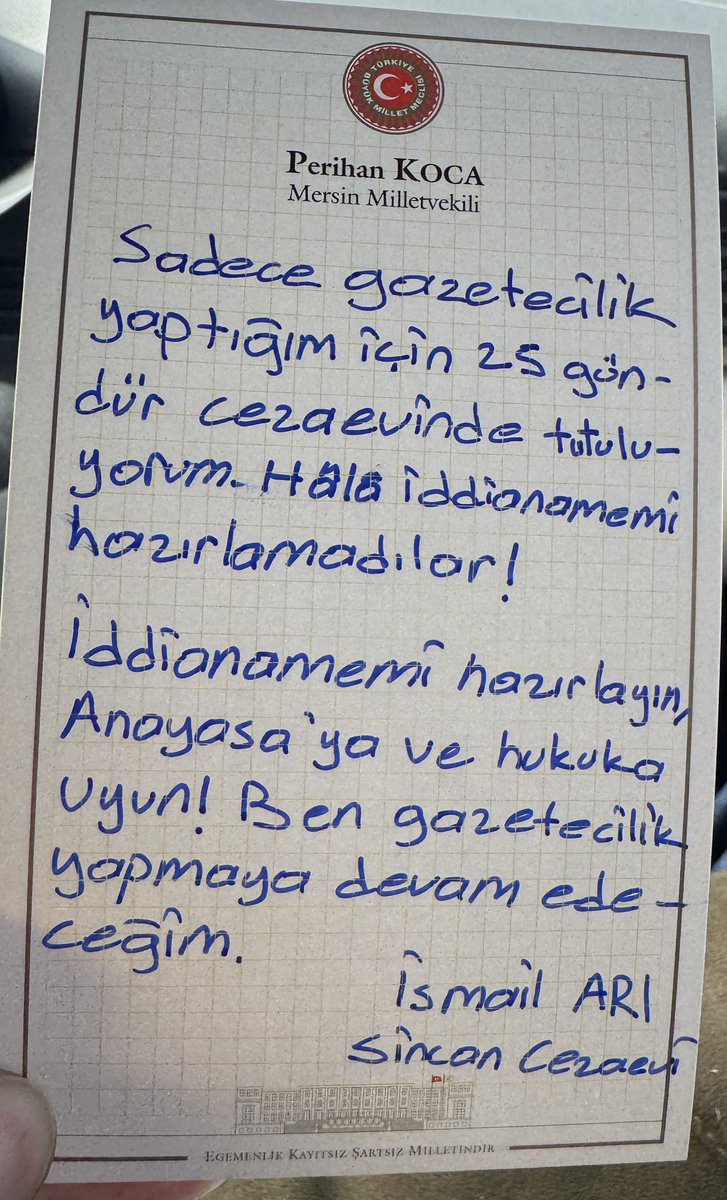 TÜRKİYE
BÜYÜK MİLLET MECLİSİ
Perihan KOCA
Mersin Milletvekili
Sadece gazetecilik
yaptığım için 25 gün-
dür cezaevinde tutulu-
yorum. Hâlâ iddianamemi
hazırlamadılar!
İddianamemi hazırlayın,
Anayasa'ya ve hukuka
uyun! Ben gazetecilik
yapmaya devam ede-
ceğim.
İsmail ARI
Sincan Cezaevi
EGEMENLİK KAYITSIZ ŞARTSIZ MİLLETİNDİR